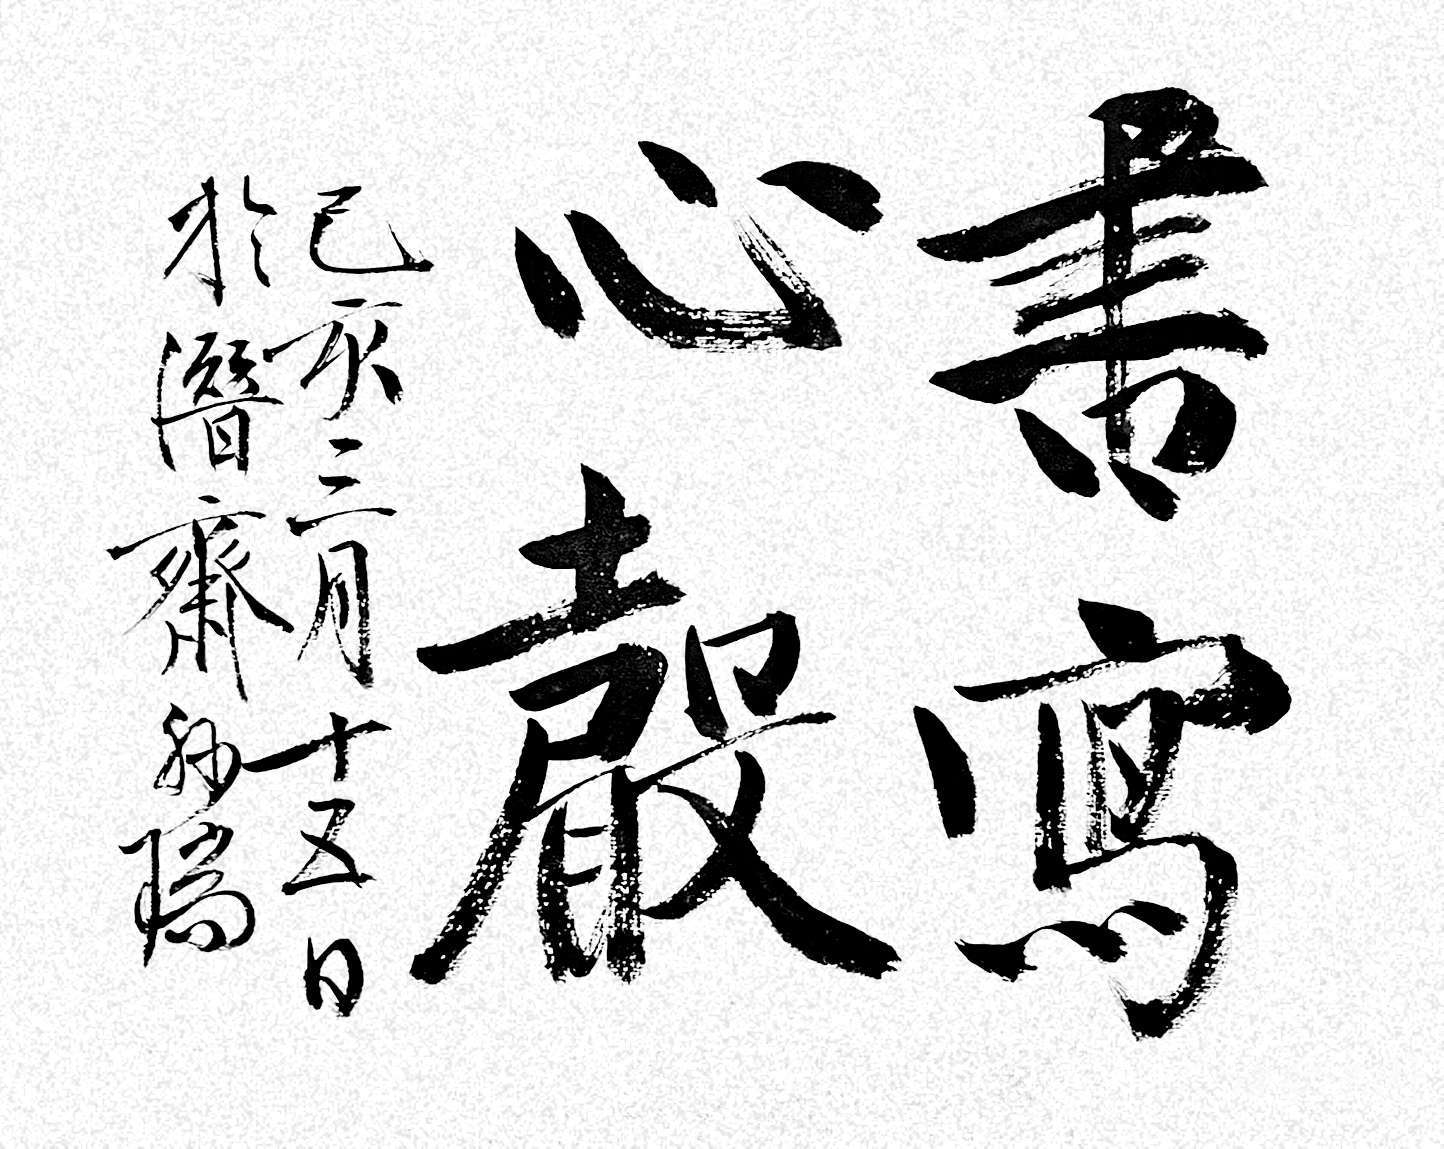 書寫
心聲
己亥三月十五日
於潛齋